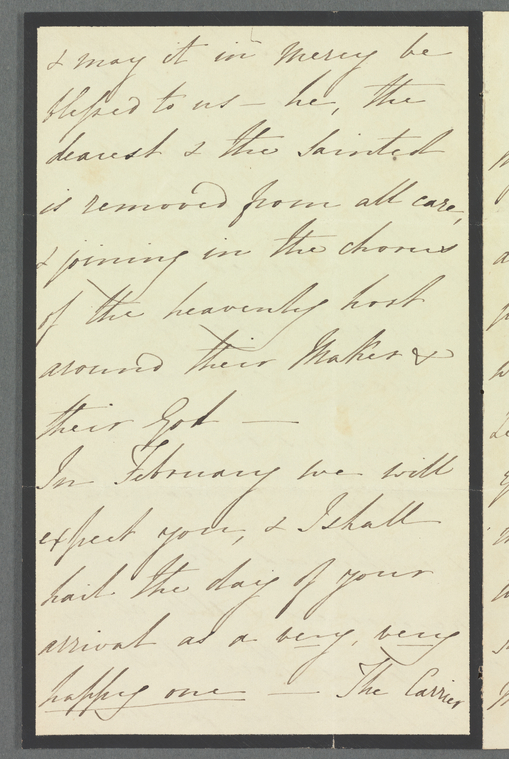 & may it in mercy be
blessed to us — he, the
dearest & the sainted
is removed from all care,
& joining in the chorus
of the heavenly host
around their Maker &
their God —
In February we will
expect you, & I shall
hail the day of your
arrival as a very, very
happy one — The Carrier